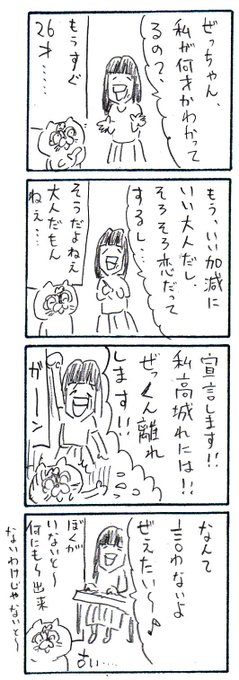 ぜっちゃん、
私が何才かわかって
るの?、
もうすぐ
26
才……
もう、いい加減に
いい大人だし、
そろそろ恋だって
するし…
そうだよねえ
大人だもん
ねえ…
宣言します!!
私高城れには!!
ぜっくん離れ
します!!
ガーン
なんて
言わないよ
ぜえたい〜♪
ぼくが
いないと〜
何にも〜出来
ないわけじゃないと〜
古い…